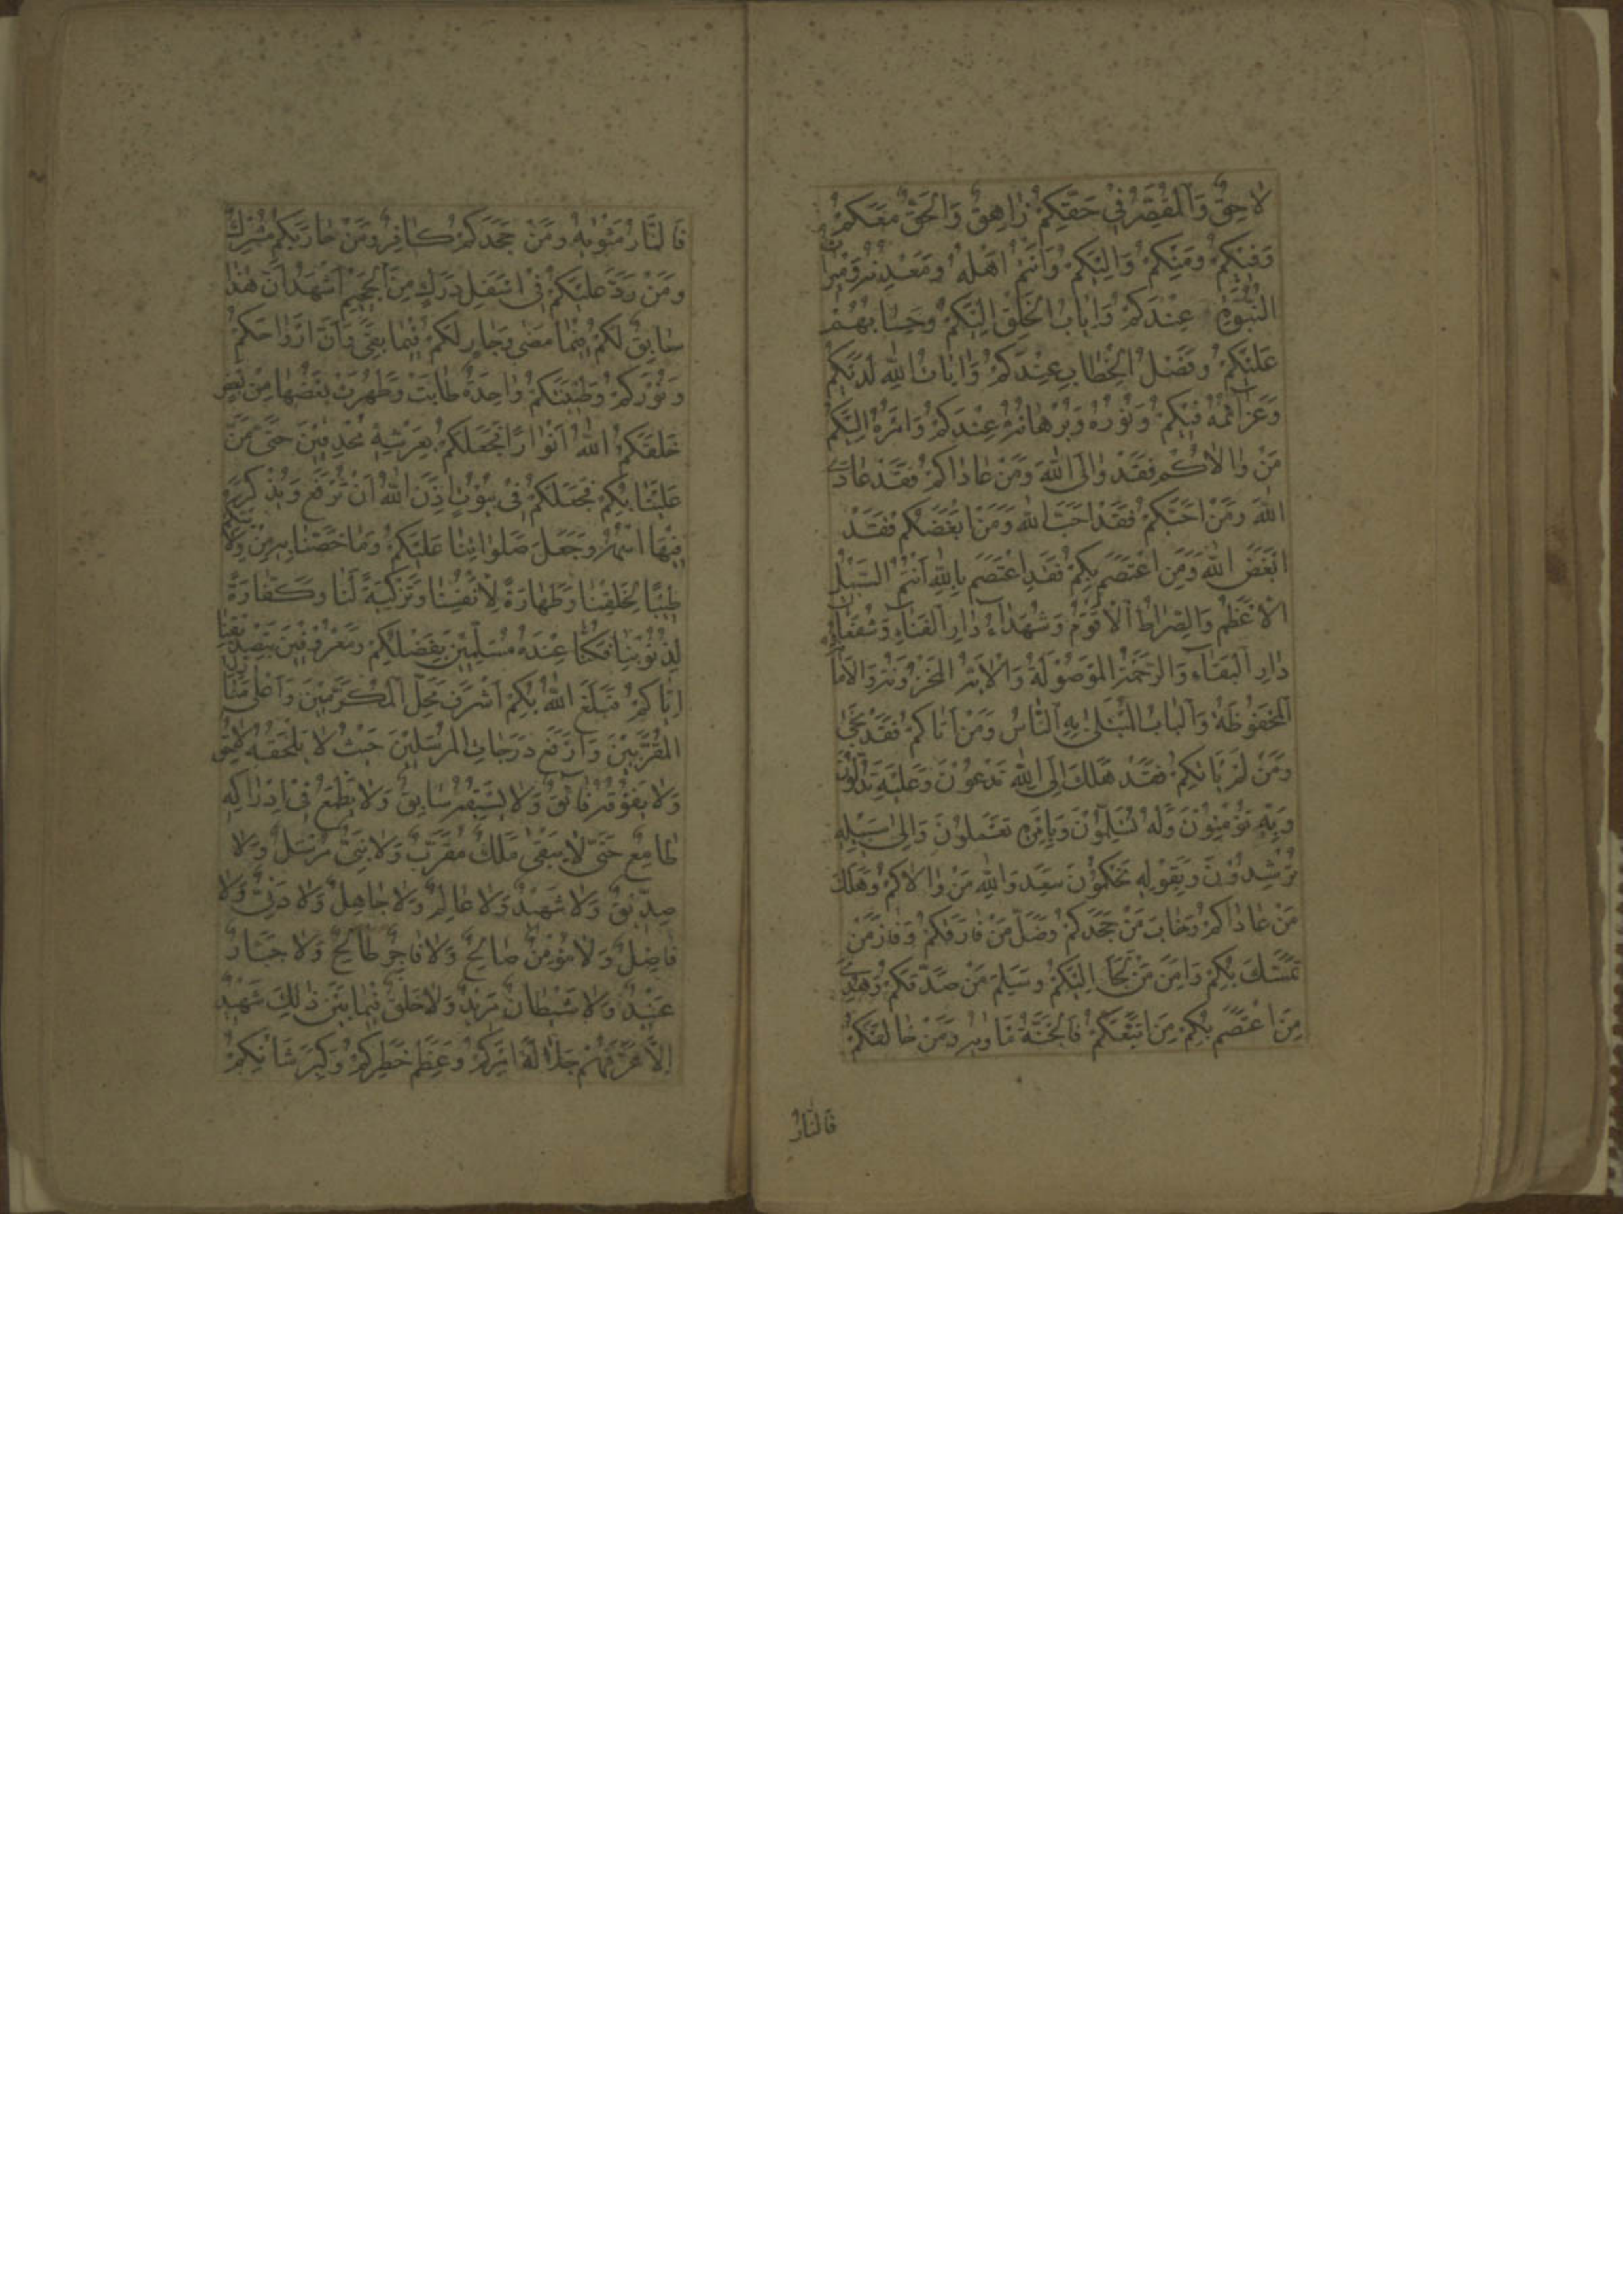 لَاحِقٌ وَالْمُقَصِّرُ فِي حَقِّكُمْ زَاهِقٌ وَالْحَقُّ مَعَكُمْ
وَفِيكُمْ وَمِنْكُمْ وَإِلَيْكُمْ وَأَنْتُمْ أَهْلُهُ وَمَعْدِنُهُ وَمِيرَاثُ
النُّبُوَّةِ عِنْدَكُمْ وَإِيَابُ الْخَلْقِ إِلَيْكُمْ وَحِسَابُهُمْ
عَلَيْكُمْ وَفَصْلُ الْخِطَابِ عِنْدَكُمْ وَآيَاتُ اللهِ لَدَيْكُمْ
وَعَزَائِمُهُ فِيكُمْ وَنُورُهُ وَبُرْهَانُهُ عِنْدَكُمْ وَأَمْرُهُ إِلَيْكُمْ
مَنْ وَالَاكُمْ فَقَدْ وَالَى اللهَ وَمَنْ عَادَاكُمْ فَقَدْ عَادَى
اللهَ وَمَنْ أَحَبَّكُمْ فَقَدْ أَحَبَّ اللهَ وَمَنْ أَبْغَضَكُمْ فَقَدْ
أَبْغَضَ اللهَ وَمَنِ اعْتَصَمَ بِكُمْ فَقَدِ اعْتَصَمَ بِاللهِ أَنْتُمُ السَّبِيلُ
الْأَعْظَمُ وَالصِّرَاطُ الْأَقْوَمُ وَشُهَدَاءُ دَارِ الْفَنَاءِ وَشُفَعَاءُ
دَارِ الْبَقَاءِ وَالرَّحْمَةُ الْمَوْصُولَةُ وَالْآيَةُ الْمَخْزُونَةُ وَالْأَمَانَةُ
الْمَحْفُوظَةُ وَالْبَابُ الْمُبْتَلَى بِهِ النَّاسُ وَمَنْ أَتَاكُمْ فَقَدْ نَجَى
وَمَنْ لَمْ يَأْتِكُمْ فَقَدْ هَلَكَ إِلَى اللهِ تَدْعُونَ وَعَلَيْهِ تَدُلُّونَ
وَبِهِ تُؤْمِنُونَ وَلَهُ تُسَلِّمُونَ وَبِأَمْرِهِ تَعْمَلُونَ وَإِلَى سَبِيلِهِ
تُرْشِدُونَ وَبِقَوْلِهِ تَحْكُمُونَ سَعِدَ وَاللهِ مَنْ وَالَاكُمْ وَهَلَكَ
مَنْ عَادَاكُمْ وَخَابَ مَنْ جَحَدَكُمْ وَضَلَّ مَنْ فَارَقَكُمْ وَفَازَ مَنْ
تَمَسَّكَ بِكُمْ وَأَمِنَ مَنْ لَجَأَ إِلَيْكُمْ وَسَلِمَ مَنْ صَدَّقَكُمْ وَهُدِيَ
مَنِ اعْتَصَمَ بِكُمْ مَنِ اتَّبَعَكُمْ فَالْجَنَّةُ مَأْوَاهُ وَمَنْ خَالَفَكُمْ
فَالنَّارُ
فَالنَّارُ مَثْوَاهُ وَمَنْ جَحَدَكُمْ كَافِرٌ وَمَنْ حَارَبَكُمْ مُشْرِكٌ
وَمَنْ رَدَّ عَلَيْكُمْ فِي أَسْفَلِ دَرَكٍ مِنَ الْجَحِيمِ أَشْهَدُ أَنَّ هَذَا
سَابِقٌ لَكُمْ فِيمَا مَضَى وَجَارٍ لَكُمْ فِيمَا بَقِيَ وَأَنَّ أَرْوَاحَكُمْ
وَنُورَكُمْ وَطِينَتَكُمْ وَاحِدَةٌ طَابَتْ وَطَهُرَتْ بَعْضُهَا مِنْ بَعْضٍ
خَلَقَكُمُ اللهُ أَنْوَارًا فَجَعَلَكُمْ بِعَرْشِهِ مُحْدِقِينَ حَتَّى مَنَّ
عَلَيْنَا بِكُمْ فَجَعَلَكُمْ فِي بُيُوتٍ أَذِنَ اللهُ أَنْ تُرْفَعَ وَيُذْكَرَ
فِيهَا اسْمُهُ وَجَعَلَ صَلَوَاتِنَا عَلَيْكُمْ وَمَا خَصَّنَا بِهِ مِنْ وَلَايَتِكُمْ
طِيبًا لِخَلْقِنَا وَطَهَارَةً لِأَنْفُسِنَا وَتَزْكِيَةً لَنَا وَكَفَّارَةً
لِذُنُوبِنَا فَكُنَّا عِنْدَهُ مُسَلِّمِينَ بِفَضْلِكُمْ وَمَعْرُوفِينَ بِتَصْدِيقِنَا
إِيَّاكُمْ فَبَلَغَ اللهُ بِكُمْ أَشْرَفَ مَحَلِّ الْمُكَرَّمِينَ وَأَعْلَى مَنَازِلِ
الْمُقَرَّبِينَ وَأَرْفَعَ دَرَجَاتِ الْمُرْسَلِينَ حَيْثُ لَا يَلْحَقُهُ لَاحِقٌ
وَلَا يَفُوقُهُ فَائِقٌ وَلَا يَسْبِقُهُ سَابِقٌ وَلَا يَطْمَعُ فِي إِدْرَاكِهِ
طَامِعٌ حَتَّى لَا يَبْقَى مَلَكٌ مُقَرَّبٌ وَلَا نَبِيٌّ مُرْسَلٌ وَلَا
صِدِّيقٌ وَلَا شَهِيدٌ وَلَا عَالِمٌ وَلَا جَاهِلٌ وَلَا دَنِيٌّ وَلَا
فَاضِلٌ وَلَا مُؤْمِنٌ صَالِحٌ وَلَا فَاجِرٌ طَالِحٌ وَلَا جَبَّارٌ
عَنِيدٌ وَلَا شَيْطَانٌ مَرِيدٌ وَلَا خَلْقٌ فِيمَا بَيْنَ ذَلِكَ شَهِيدٌ
إِلَّا عَرَّفَهُمْ جَلَالَةَ أَمْرِكُمْ وَعِظَمَ خَطَرِكُمْ وَكِبَرَ شَأْنِكُمْ